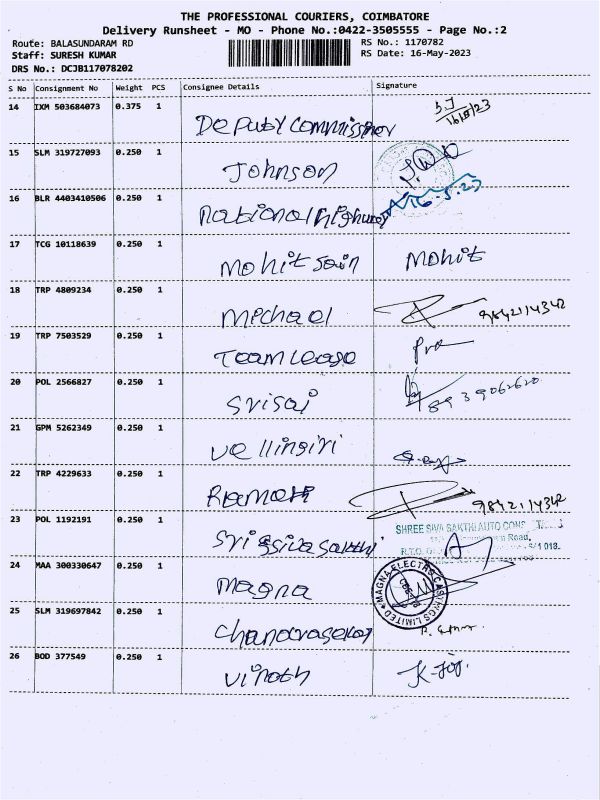 THE PROFESSIONAL COURIERS, COIMBATORE
Delivery Runsheet - MO - Phone No.:0422-3505555 - Page No.:2
Route: BALASUNDARAM RD
Staff: SURESH KUMAR
DRS No.: DCJB117078202
RS No.: 1170782
RS Date: 16-May-2023
S No Consignment No Weight PCS Consignee Details Signature
14 IXM 503684073 0.375 1 Deputy commissinor
16/5/23
15 SLM 319727093 0.250 1 Johnson
16 BLR 4403410506 0.250 1 national highway 16-5-23
17 TCG 10118639 0.250 1 mohit jain Mohit
18 TRP 4809234 0.250 1 michael 9842114342
19 TRP 7503529 0.250 1 Team Lease
20 POL 2566827 0.250 1 Srisai 8939062620
21 GPM 5262349 0.250 1 vellingiri
22 TRP 4229633 0.250 1 Ramesh 9842114342
23 POL 1192191 0.250 1 Sri ssiva sakthi SHREE SIVA SAKTHI AUTO
Road,
24 MAA 300330647 0.250 1 magna MAGNA ELECTRO CASTINGS LIMITED
25 SLM 319697842 0.250 1 chandrasekar
26 BOD 377549 0.250 1 vinoth